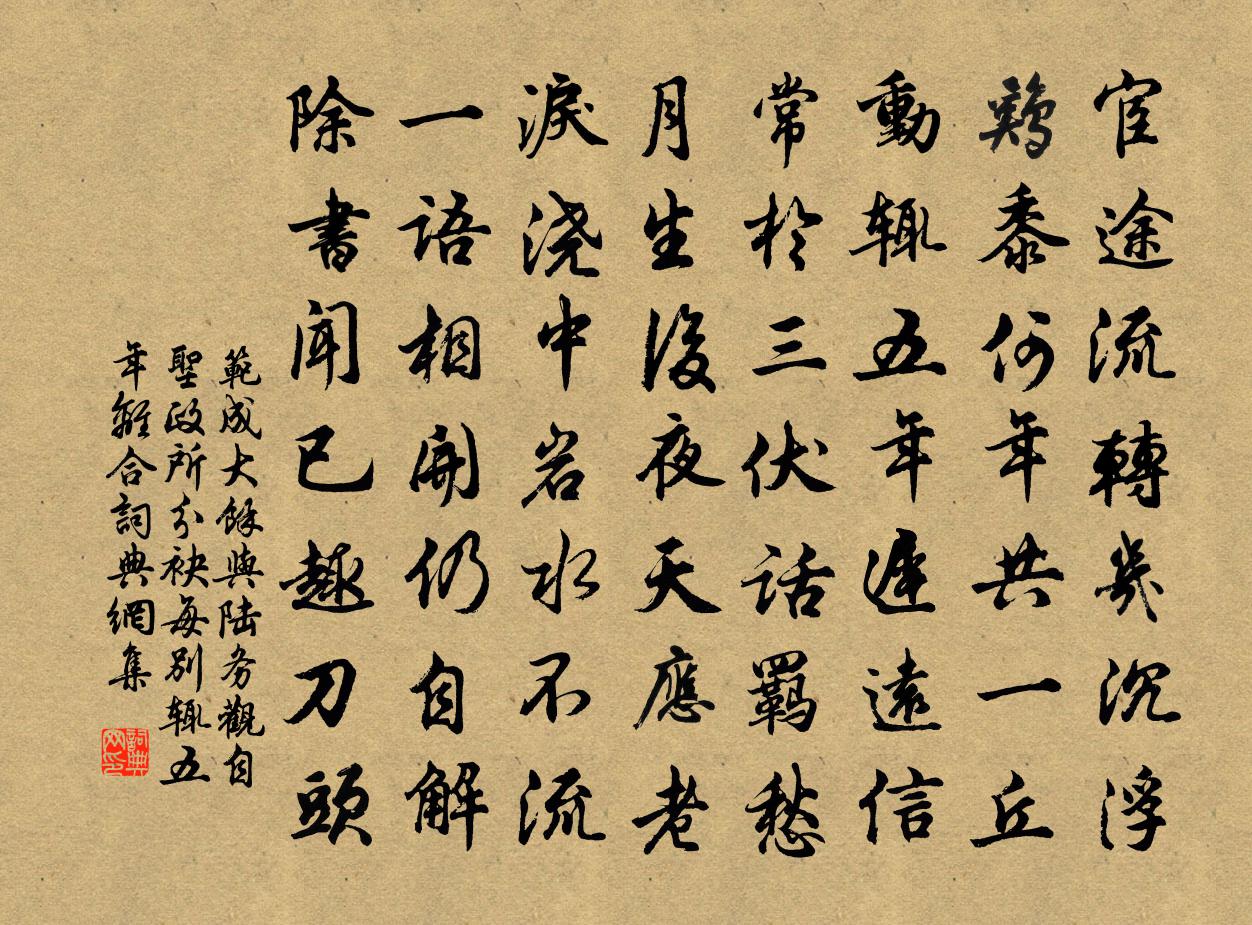 宦途流轉幾沉浮
鷄黍何年共一丘
動輒五年遲遠信
常於三伏話羈愁
月生後夜天應老
淚浇中岩水不流
一語相開仍自解
除書聞已趣刀頭
範成大餘與陆務觀自
聖政所分袂每別輒五
年離合詞典網集
詞典网印